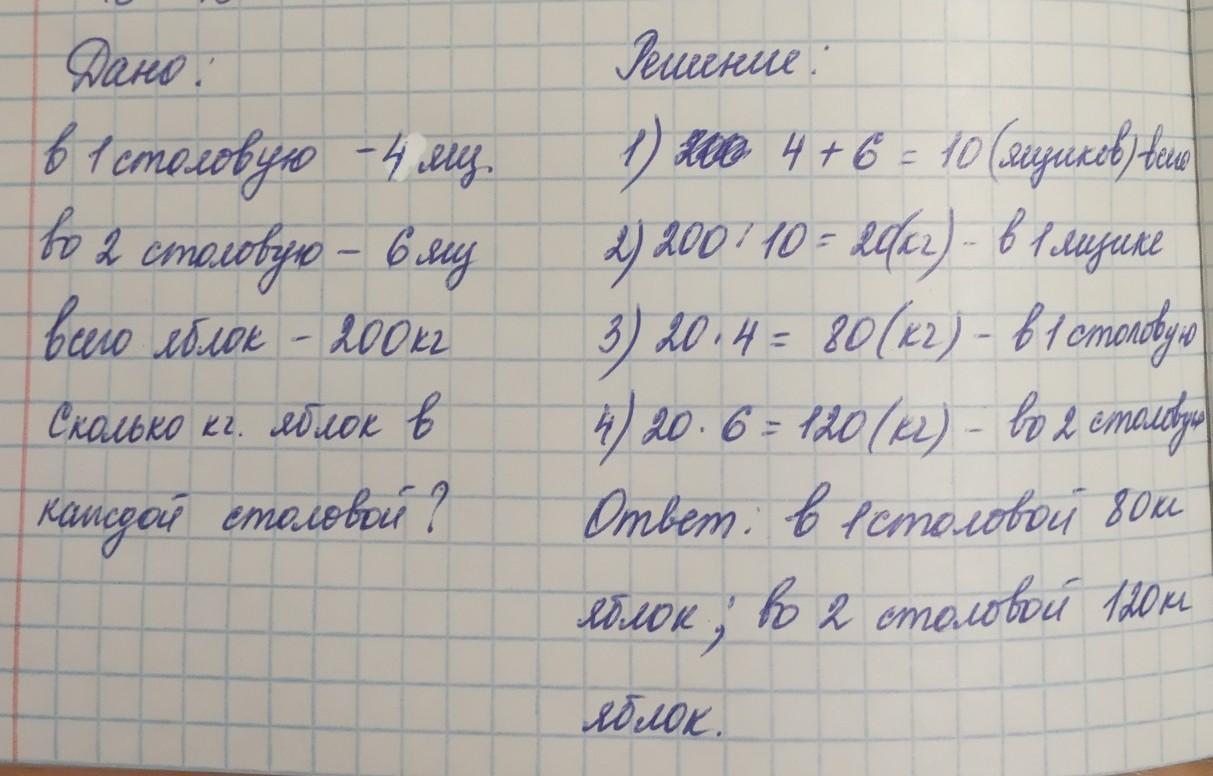 Дано:
в 1 столовую - 4 ящ.
во 2 столовую - 6 ящ
всего яблок - 200 кг
Сколько кг. яблок в
каждой столовой?
Решение:
1) 4 + 6 = 10 (ящиков) - всего
2) 200 : 10 = 20 (кг) - в 1 ящике
3) 20 · 4 = 80 (кг) - в 1 столовую
4) 20 · 6 = 120 (кг) - во 2 столовую
Ответ: в 1 столовой 80 кг
яблок; во 2 столовой 120 кг
яблок.